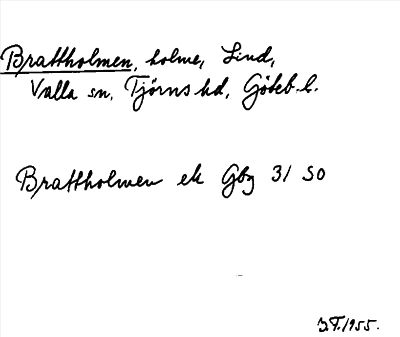 Brattholmen, holme, Lind,
Valla sn, Tjörns hd, Göteb. l.
Brattholmen ek Gbg 31 SO
1955.